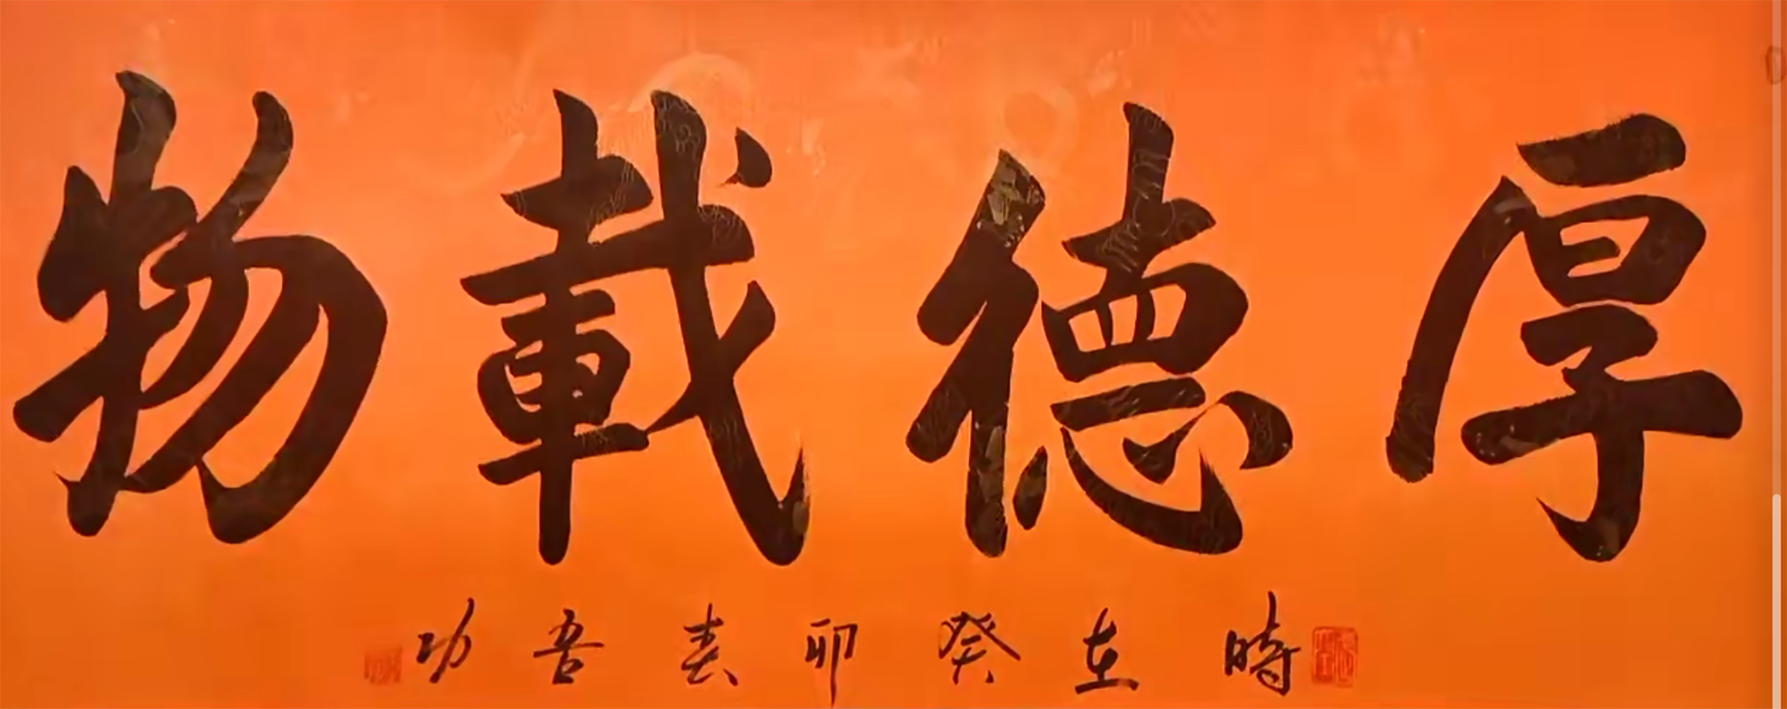 厚德載物
時在癸卯春吾功